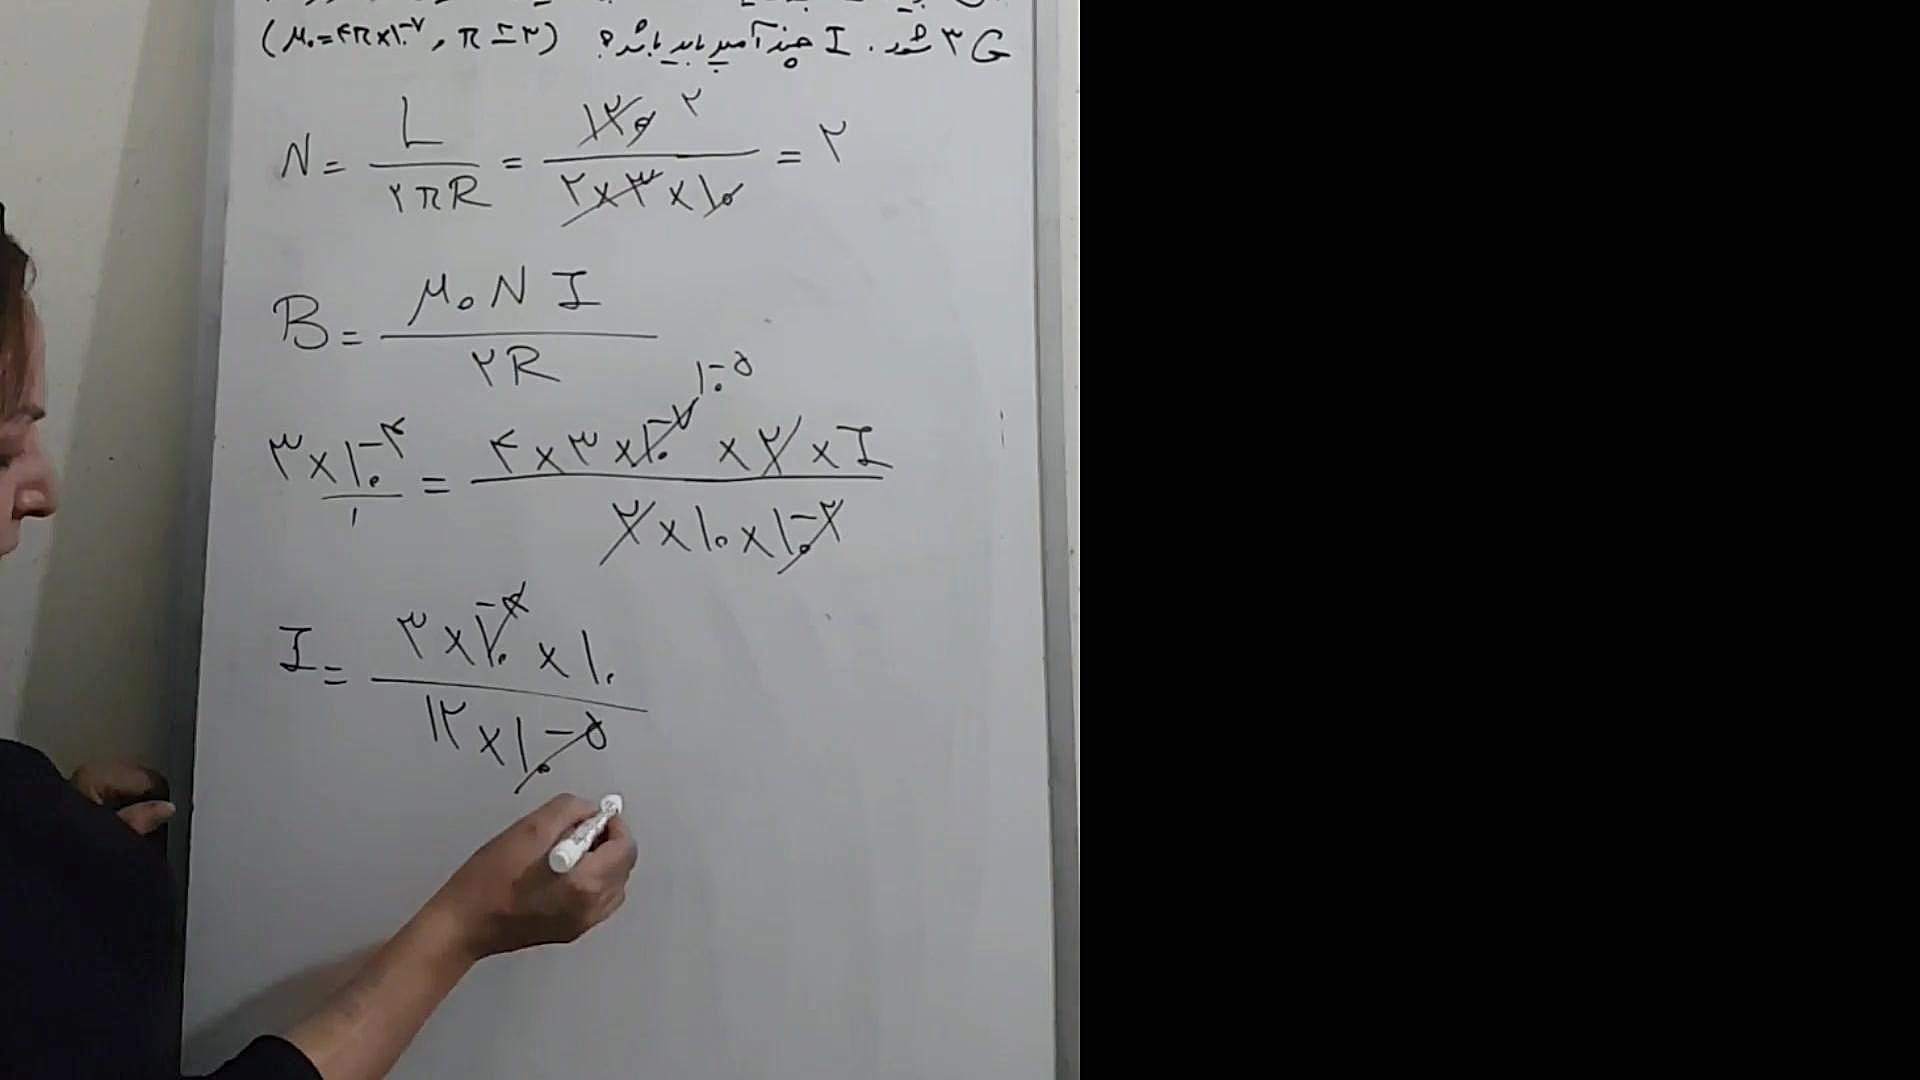 ۳ G شود. I چند آمپر باید باشد؟ (μ₀=۴π×۱۰⁻⁷, π≃۳)
N = L / ۲πR = ۱۲۰ / ۲×۳×۱۰ = ۲
B = μ₀ N I / ۲R
۳×۱۰⁻⁴ / ۱ = ۴×۳×۱۰⁻⁷ ×۲×I / ۲×۱۰×۱۰⁻² ۱۰⁻⁵
I = ۳×۱۰⁻⁴×۱۰ / ۱۲×۱۰⁻⁵